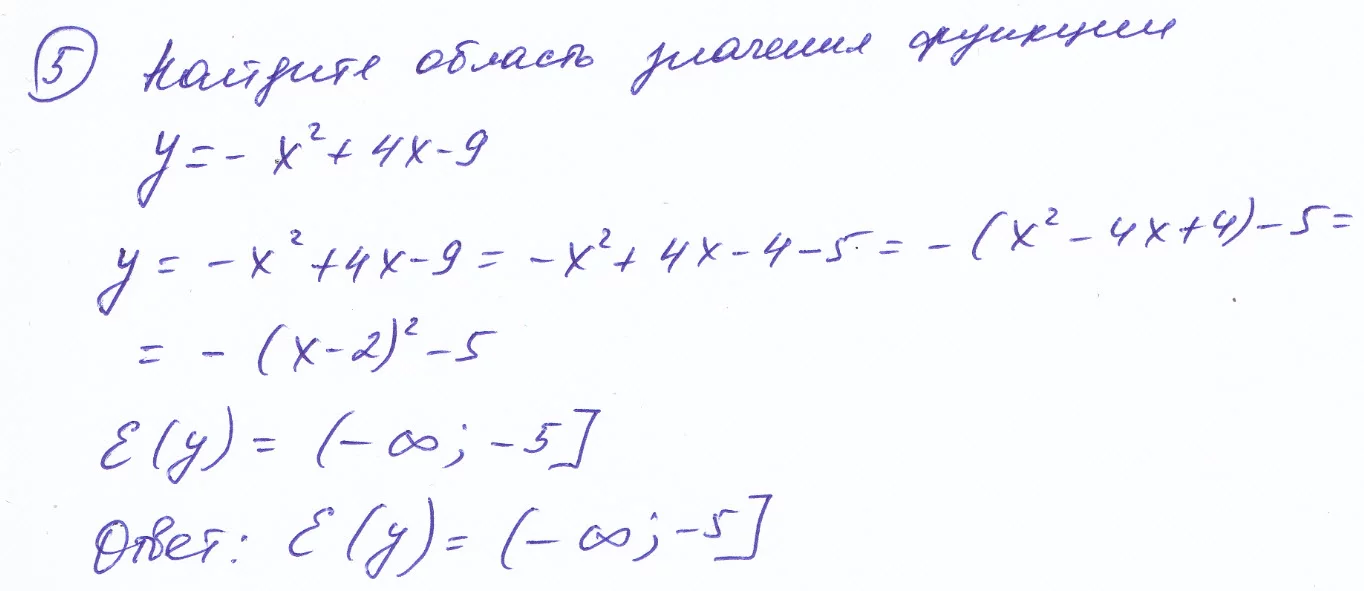 5 Найдите область значения функции
y = - x² + 4x - 9
y = - x² + 4x - 9 = - x² + 4x - 4 - 5 = - (x² - 4x + 4) - 5 =
= - (x - 2)² - 5
E(y) = (- ∞; - 5]
Ответ: E(y) = (- ∞; - 5]